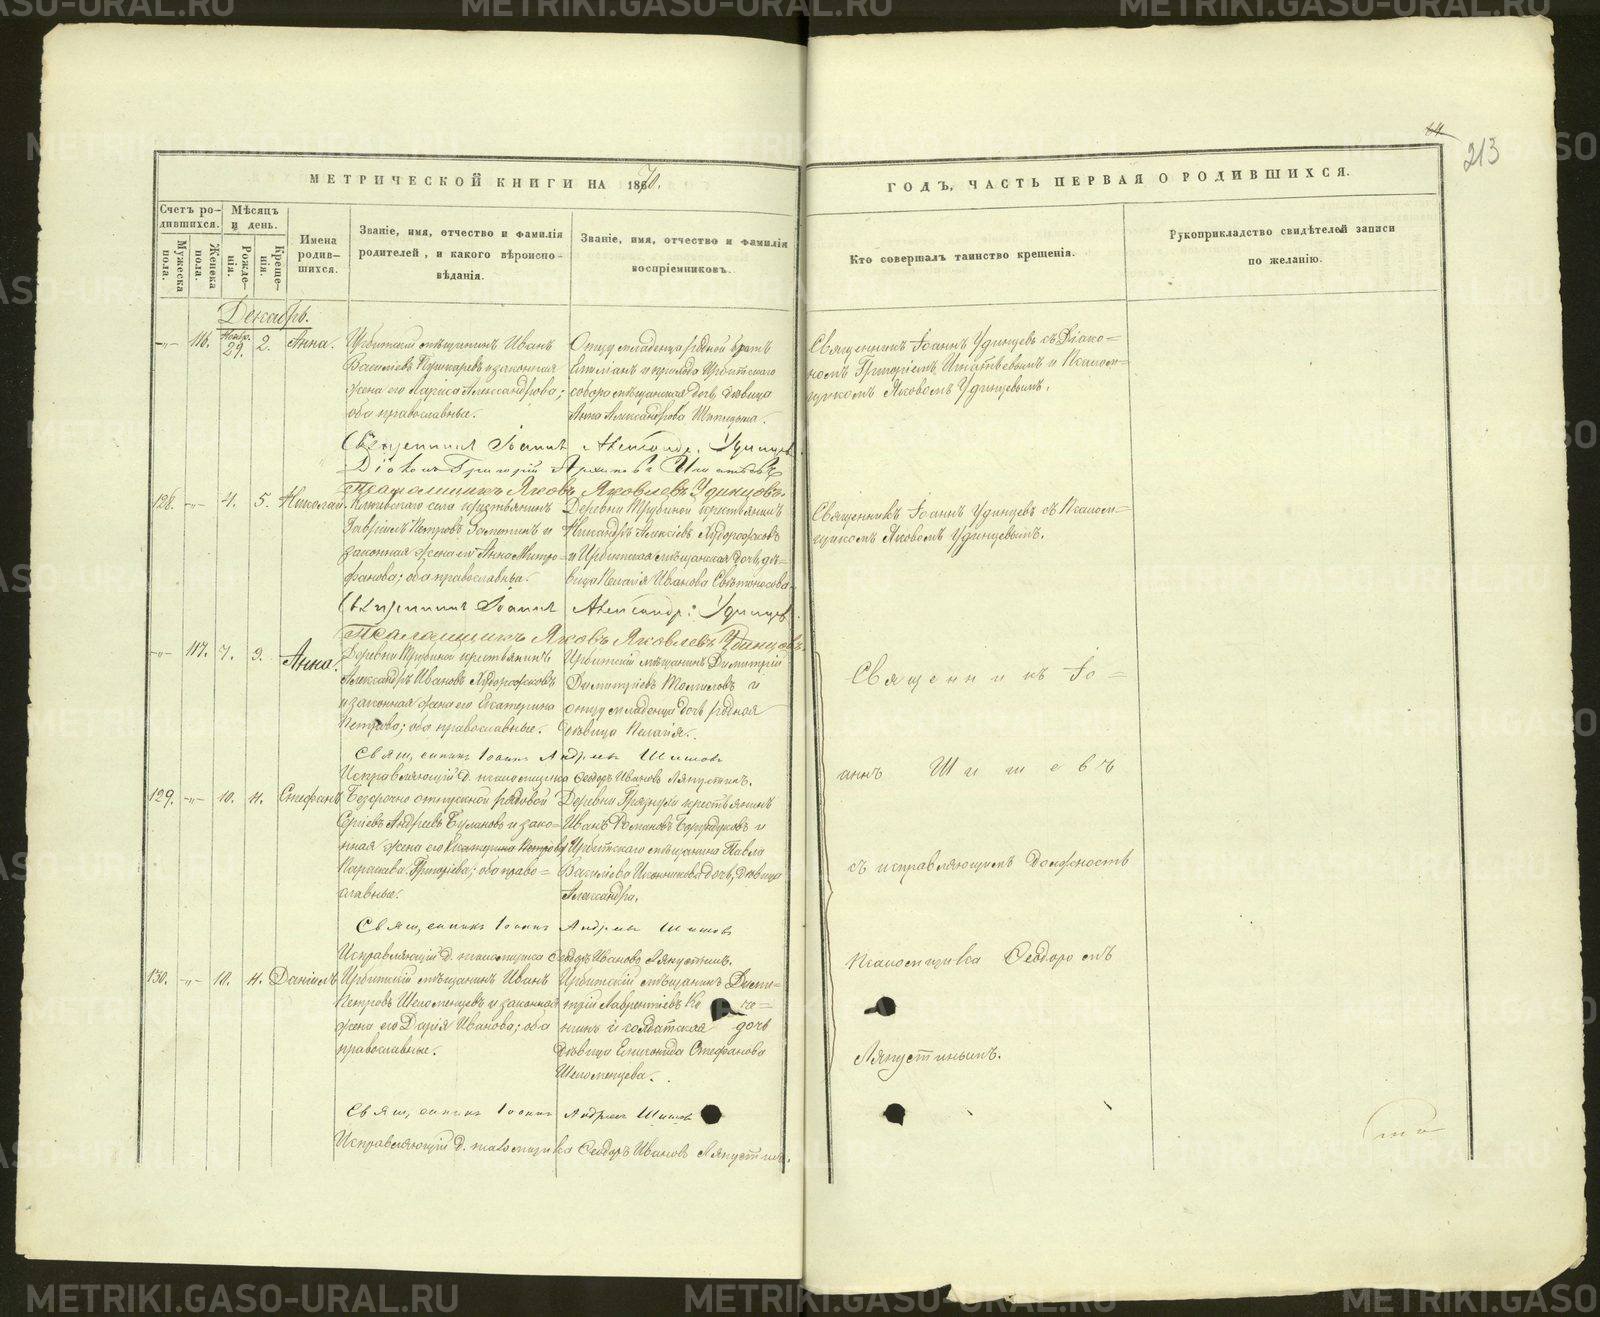 METRIKI.GASO-URAL.RU
44
213
МЕТРИЧЕСКОЙ КНИГИ НА 1870.
ГОДЪ, ЧАСТЬ ПЕРВАЯ О РОДИВШИХСЯ.
Счетъ родившихся.
Мужеска пола.
Женска пола.
Мѣсяцъ и день.
Рожденія.
Крещенія.
Имена родившихся.
Званіе, имя, отчество и фамилія родителей, и какого вѣроисповѣданія.
Званіе, имя, отчество и фамилія воспріемниковъ.
Кто совершалъ таинство крещенія.
Рукоприкладство свидѣтелей записи по желанію.
Декабрь.
-"- 116. Ноябр. 29. 2. Анна.
Ирбитскій мѣщанинъ Иванъ
Василіевъ Пушкаревъ и законная
жена его Лариса Александрова;
оба православные.
Отцу младенца родной братъ
и прихода Ирбитскаго
собора мѣщанская дочь дѣвица
Анна Александрова
Священникъ Іоаннъ Удинцевъ съ Діако-
номъ Григоріемъ Игнатьевымъ и Псалом-
щикомъ Яковомъ Удинцевымъ.
Священникъ Іоаннъ Александр. Удинцевъ
Діаконъ Григорій Игнатьевъ
Псаломщикъ Яковъ Яковлевъ Удинцовъ.
128. -"- 4. 5. Николай.
села крестьянинъ
Гавріилъ Петровъ и
законная жена его Анна Митро-
фанова; оба православные.
Деревни Трубиной крестьянинъ
Никандръ Алексіевъ Худорожковъ
и Ирбитская мѣщанская дочь дѣ-
вица Пелагія Иванова Свѣтоносова.
Священникъ Іоаннъ Удинцевъ съ Псалом-
щикомъ Яковомъ Удинцевымъ.
Священникъ Іоаннъ Александр: Удинцевъ.
Псаломщикъ Яковъ Яковлевъ Удинцовъ.
-"- 117. 7. 9. Анна.
Деревни Трубиной крестьянинъ
Александръ Ивановъ Худорожковъ
и законная жена его Екатерина
Петрова; оба православные.
Ирбитскій мѣщанинъ Димитрій
Димитріевъ Томиловъ и
отцу младенца дочь родная
дѣвица Пелагія.
Священникъ Іо-
аннъ Шишевъ
съ исправляющимъ должность
Псаломщика Ѳеодоромъ
Ляпустинымъ.
Священникъ Іоаннъ Андреевъ Шишевъ
Исправляющій д. псаломщика Ѳеодоръ Ивановъ Ляпустинъ.
129. -"- 10. 11. Стефанъ
Безсрочно отпускной рядовой
Сергіевъ Андреевъ Булановъ и зако-
нная жена его Екатерина Петрова
Параскева Григоріева; оба право-
славные.
Деревни крестьянинъ
Иванъ Романовъ Бурундуковъ и
Ирбитскаго мѣщанина Павла
Василіева Иконникова дочь, дѣвица
Александра.
Священникъ Іоаннъ Андреевъ Шишевъ
Исправляющій д. псаломщика Ѳеодоръ Ивановъ Ляпустинъ.
130. -"- 10. 11. Даніилъ
Ирбитскій мѣщанинъ Иванъ
Петровъ Шеломенцевъ и законная
жена его Дарія Иванова; оба
православные.
Ирбитскій мѣщанинъ Дими-
трій Лаврентіевъ
и солдатская дочь
дѣвица Стефанова
Шеломенцева.
Священникъ Іоаннъ Андреевъ Шишевъ
Исправляющій д. псаломщика Ѳеодоръ Ивановъ Ляпустинъ.